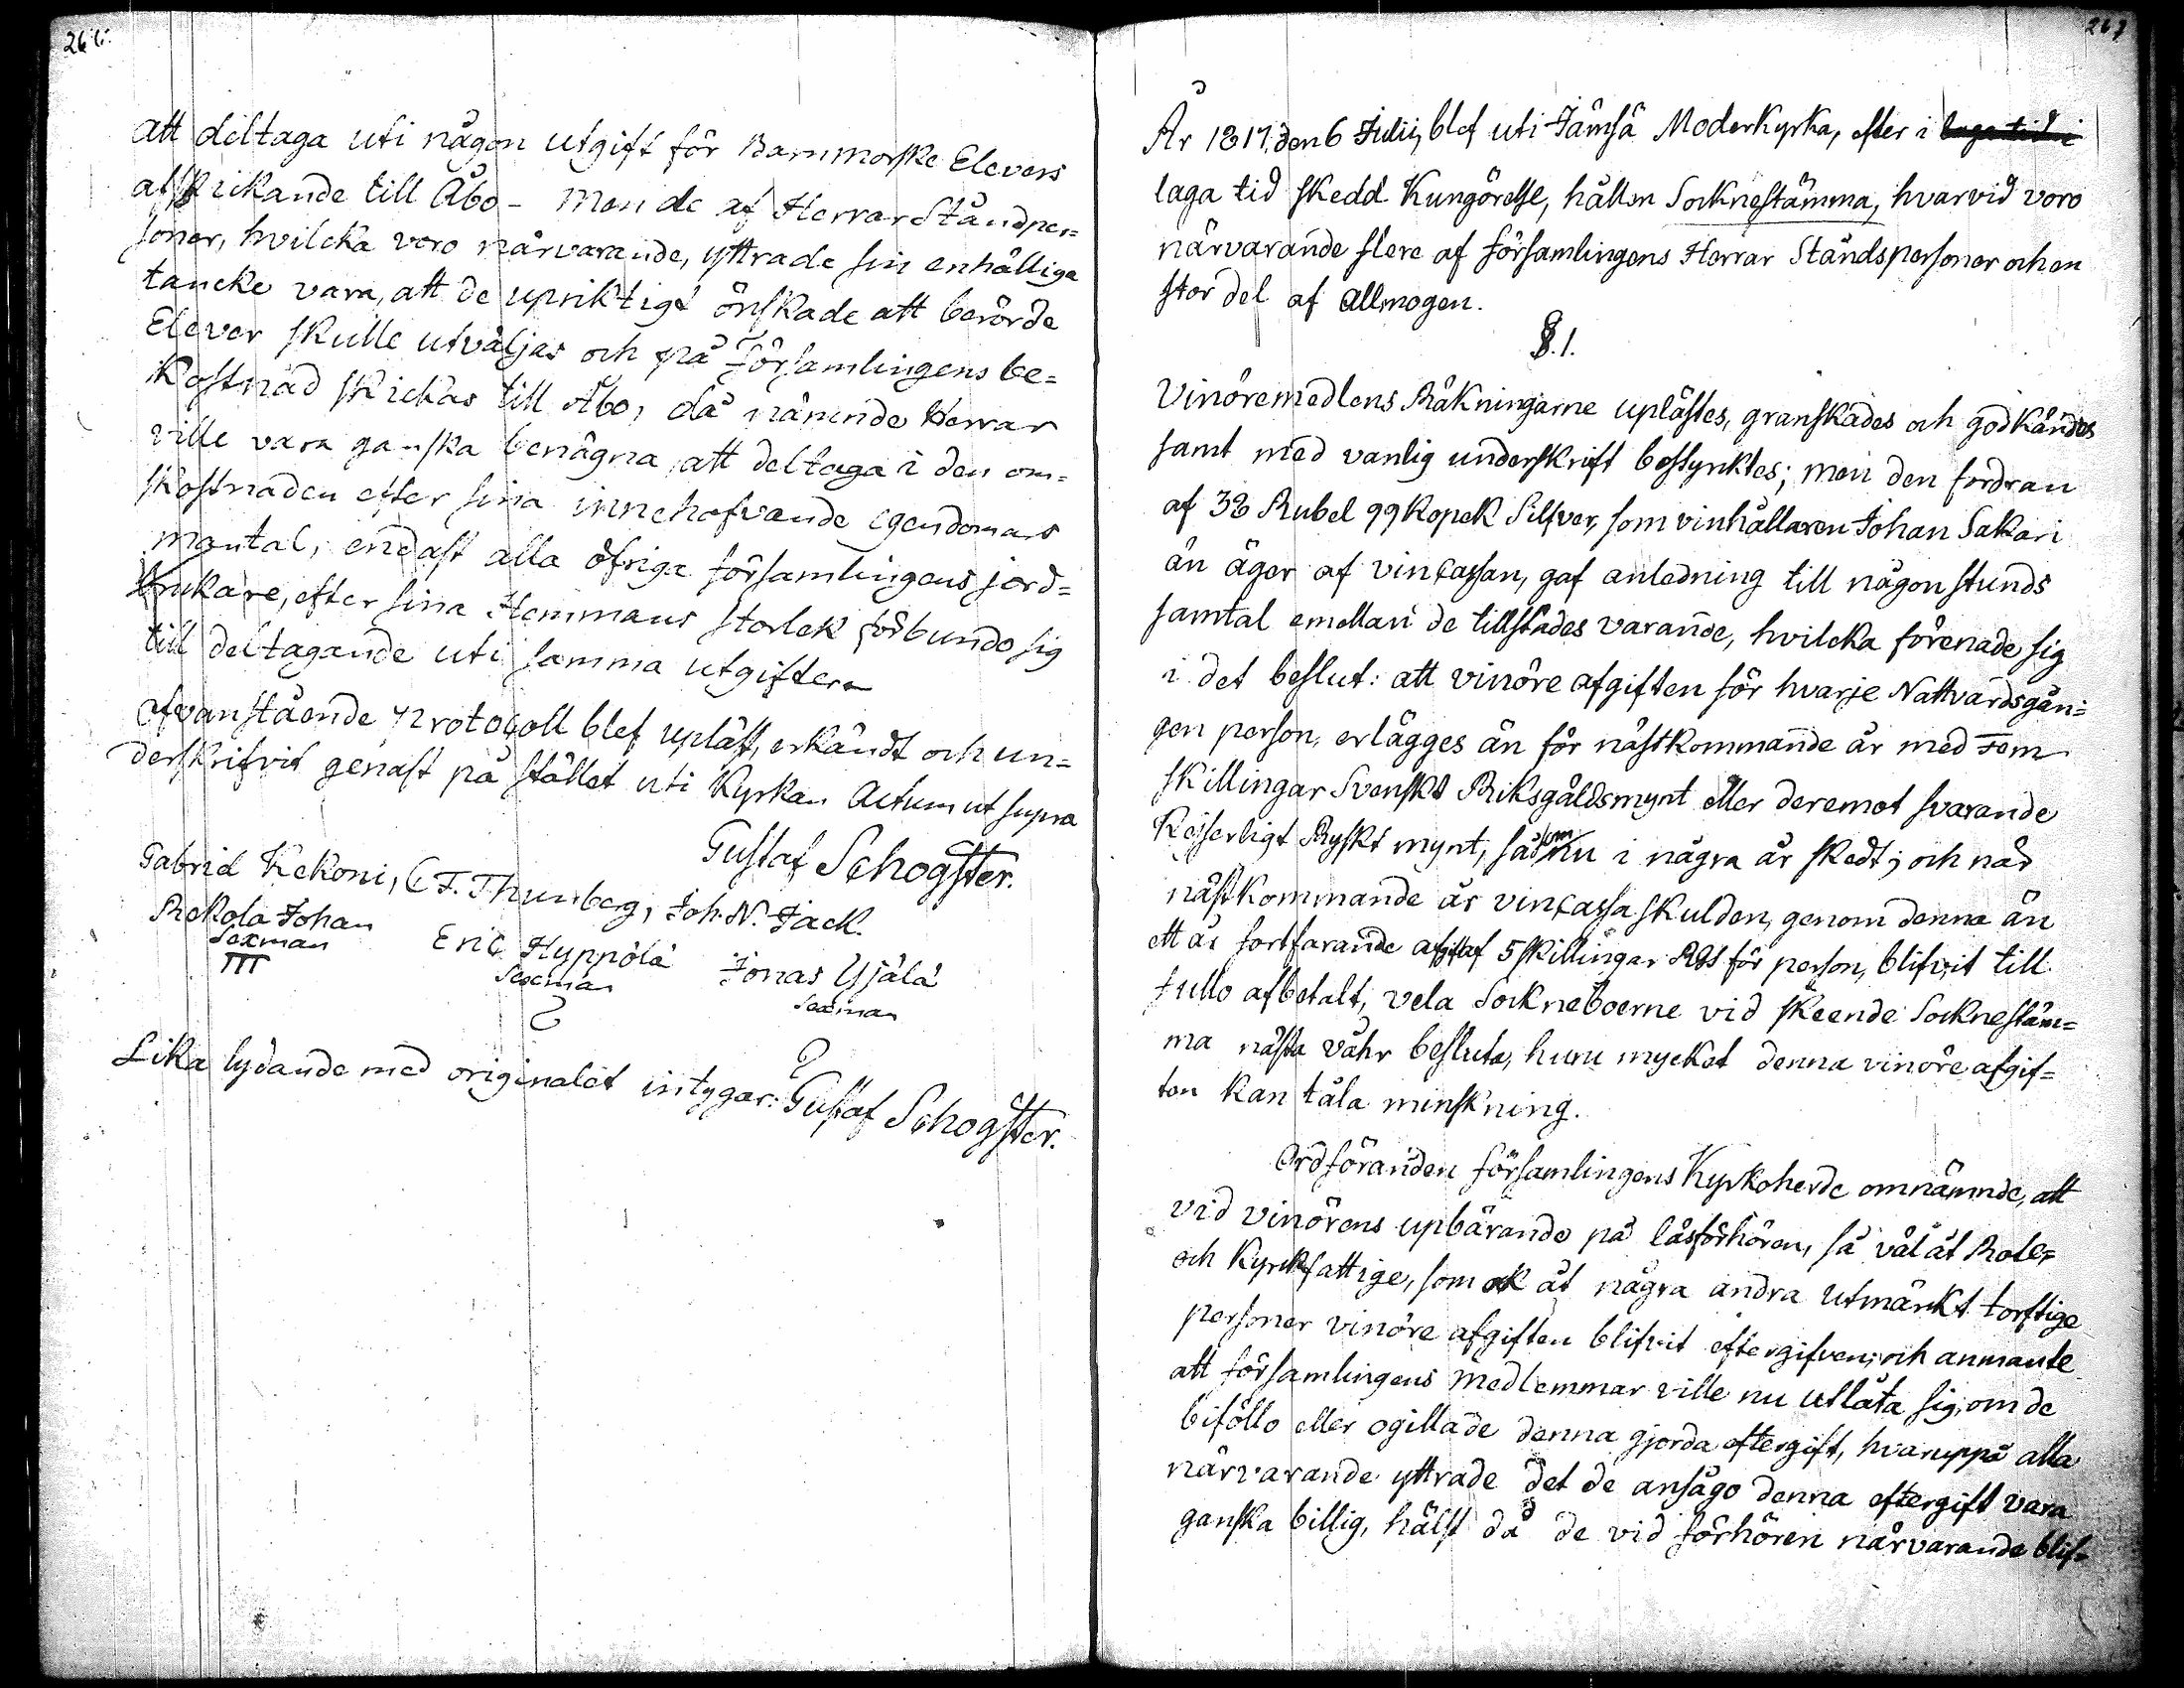 266.
att deltaga uti någon utgift för Barnmorske Elevers
afskikande till Åbo – Men de af Herrar Ståndper=
soner, hvilcka voro närvarande, yttrade sin enhälliga
tancke vara, att de upriktigt önskade att berörde
Elever skulle utväljas och på Församlingens be=
kostnad skickas till Åbo, då nämnde Herrar
ville vara ganska benägna att deltaga i den om=
kostnaden efter sina innehafvande egendomars
mantal, endast alla öfriga församlingens jord=
brukare, efter sina Hemmans storlek förbundo sig
till deltagande uti samma utgifter
Ofvanstående Protocoll blef upläst, erkändt och un=
derskrifvit genast på stället uti Kyrkan Actum ut supra
Gustaf Schogster.
Gabriel Kekoni, C F. Thunberg, Joh. N. Jack.
Rekola Johan Eric Hyppölä Jonas Yjälä
Sexman Sexman Sexman
Lika lydande med originalet intygar: Gustaf Schogster.
267
År 1817, den 6 Julii, blef uti Jämsä Moderkyrka, efter i laga tid i
laga tid skedd Kungörelse, hållen Socknestämma, hvarvid voro
närvarande flere af församlingens Herrar Ståndspersoner och en
stor del af Allmogen.
§.1.
Vinöremedlens Räkningarne uplästes, granskades och godkändes
samt med vanlig underskrift bestyrktes; men den fordran
af 38 Rubel 99 Kopek Silfver, som vinhållaren Johan Sakari
än äger af vincassan, gaf anledning till någon stunds
samtal emellan de tillstädes varande, hvilcka förenade sig
i det beslut: att vinöre afgiften för hvarje Nattvardsgån=
gen person, erlägges än för nästkommande år med Fem
skillingar Svenskt Riksgäldsmynt eller deremot svarande
Kejserligt Ryskt mynt, såsom nu i några år skedt; och när
nästkommande år vincassa skulden, genom denna än
ett år fortfarande afgift af 5 skillingar RGs för person, blifvit till
fullo afbetalt, vela Sockneboerne vid skeende Socknestäm=
ma nästa våhr besluta, huru mycket denna vinöre afgif=
ten kan tåla minskning.
Ordföranden församlingens Kyrkoherde omnämnde, att
vid vinörens upbärande på läsförhören, så väl åt Rote=
och Kyrckfattige, som ock åt några andra utmärkt torftige
personer vinöre afgiften blifvit eftergifven; och anmante
att församlingens medlemmar ville nu utlåta sig, om de
biföllo eller ogillade denna gjorda eftergift, hvaruppå alla
närvarande yttrade det de ansågo denna eftergift vara
ganska billig, hälst då de vid förhören närvarande blif=